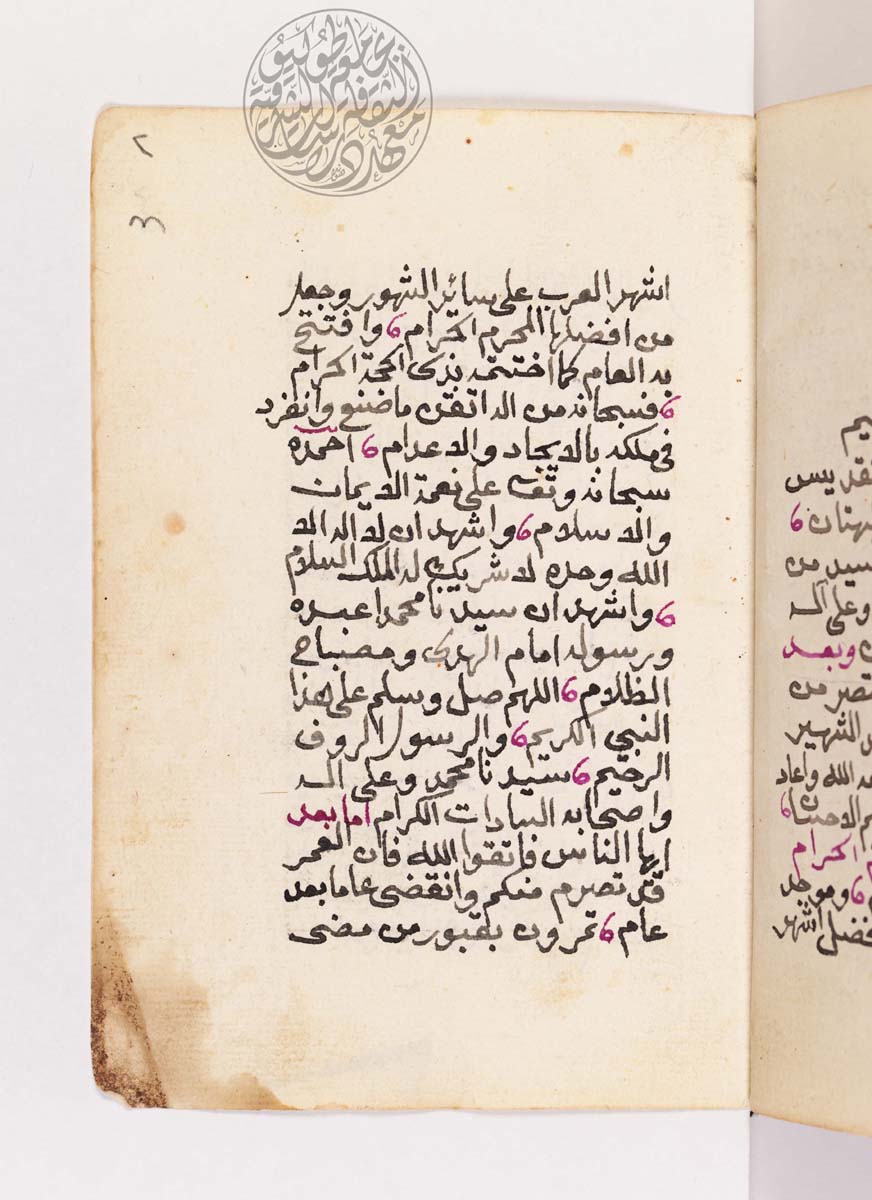 ٢
٣
اشهر العرب على سائر الشهور وجعل
من افضلها المحرم الحرام 6 وافتتح
به العام كما اختتمه بذى الحجة الحرام
6 فسبحانه من اله اتقن ما صنع وانفرد
فى ملكه بالايجاد والاعدام 6 احمده
سبحانه وتعالى على نعمة الايمان
والاسلام 6 واشهد ان لا اله الا
الله وحده لا شريك له الملك السلام
6 واشهد ان سيدنا محمدا عبده
ورسوله امام الهدى ومصباح
الظلام 6 اللهم صل وسلم على هذا
النبي الكريم 6 والرسول الروف
الرحيم 6 سيدنا محمد وعلى اله
واصحابه السادات الكرام اما بعد
ايها الناس فاتقوا الله فان العمر
قد تصرم منكم وانقضى عاما بعد
عام 6 تمرون بقبور من مضى
يم
تقديس
6
سيد من
وعلى اله
وبعد
من
الشهير
الله واعاد
6
الحرام
6
افضل اشهر